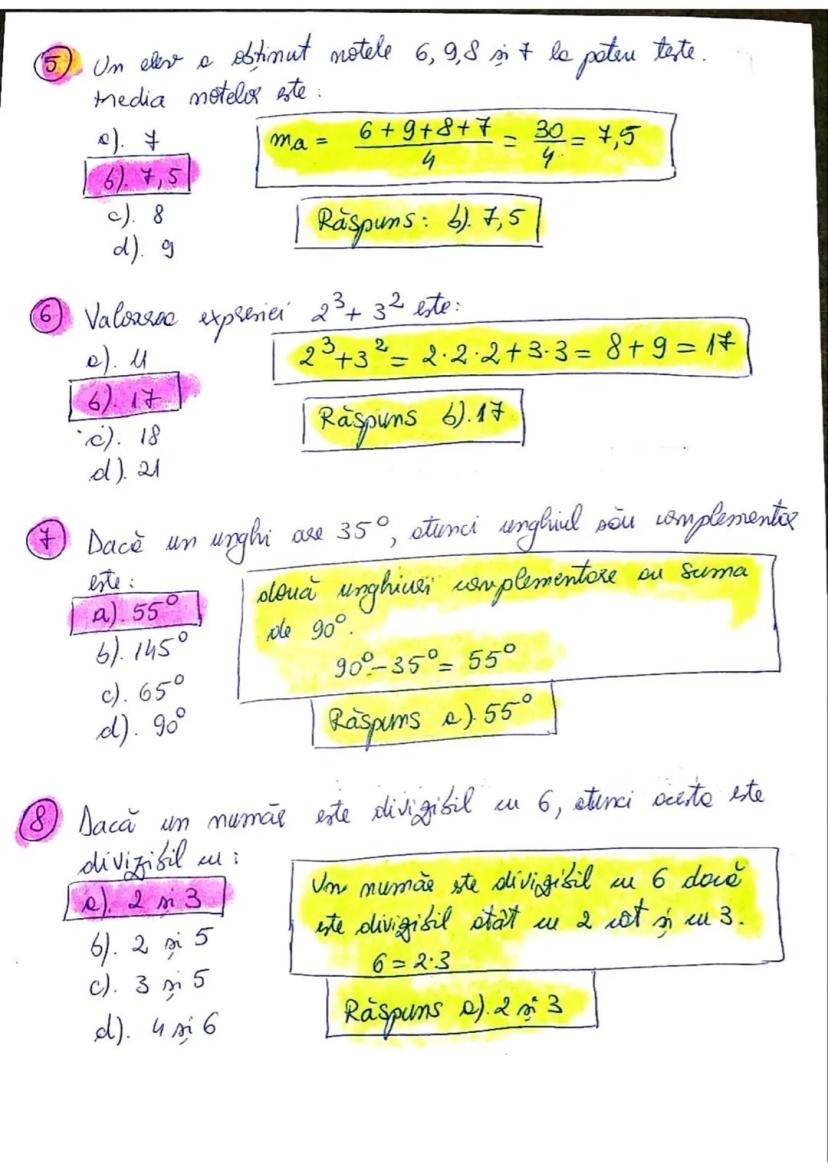 5 Un elev a obținut notele 6, 9, 8 și 7 la patru teste.
Media notelor este:
a). 7
ma = (6+9+8+7)/4 = 30/4 = 7,5
b). 7,5
c). 8
Răspuns: b). 7,5
d). 9
6 Valoarea expresiei 2³ + 3² este:
a). 11
2³+3² = 2·2·2+3·3 = 8+9 = 17
b). 17
Răspuns b). 17
c). 18
d). 21
7 Dacă un unghi are 35°, atunci unghiul său complementar
este:
a). 55°
b). 145°
c). 65°
d). 90°
două unghiuri complementare au suma
de 90°.
90°-35° = 55°
Răspuns a). 55°
8 Dacă un număr este divizibil cu 6, atunci acesta este
divizibil cu:
a). 2 și 3
b). 2 și 5
c). 3 și 5
d). 4 și 6
Un număr este divizibil cu 6 dacă
este divizibil atât cu 2 cât și cu 3.
6 = 2·3
Răspuns a). 2 și 3